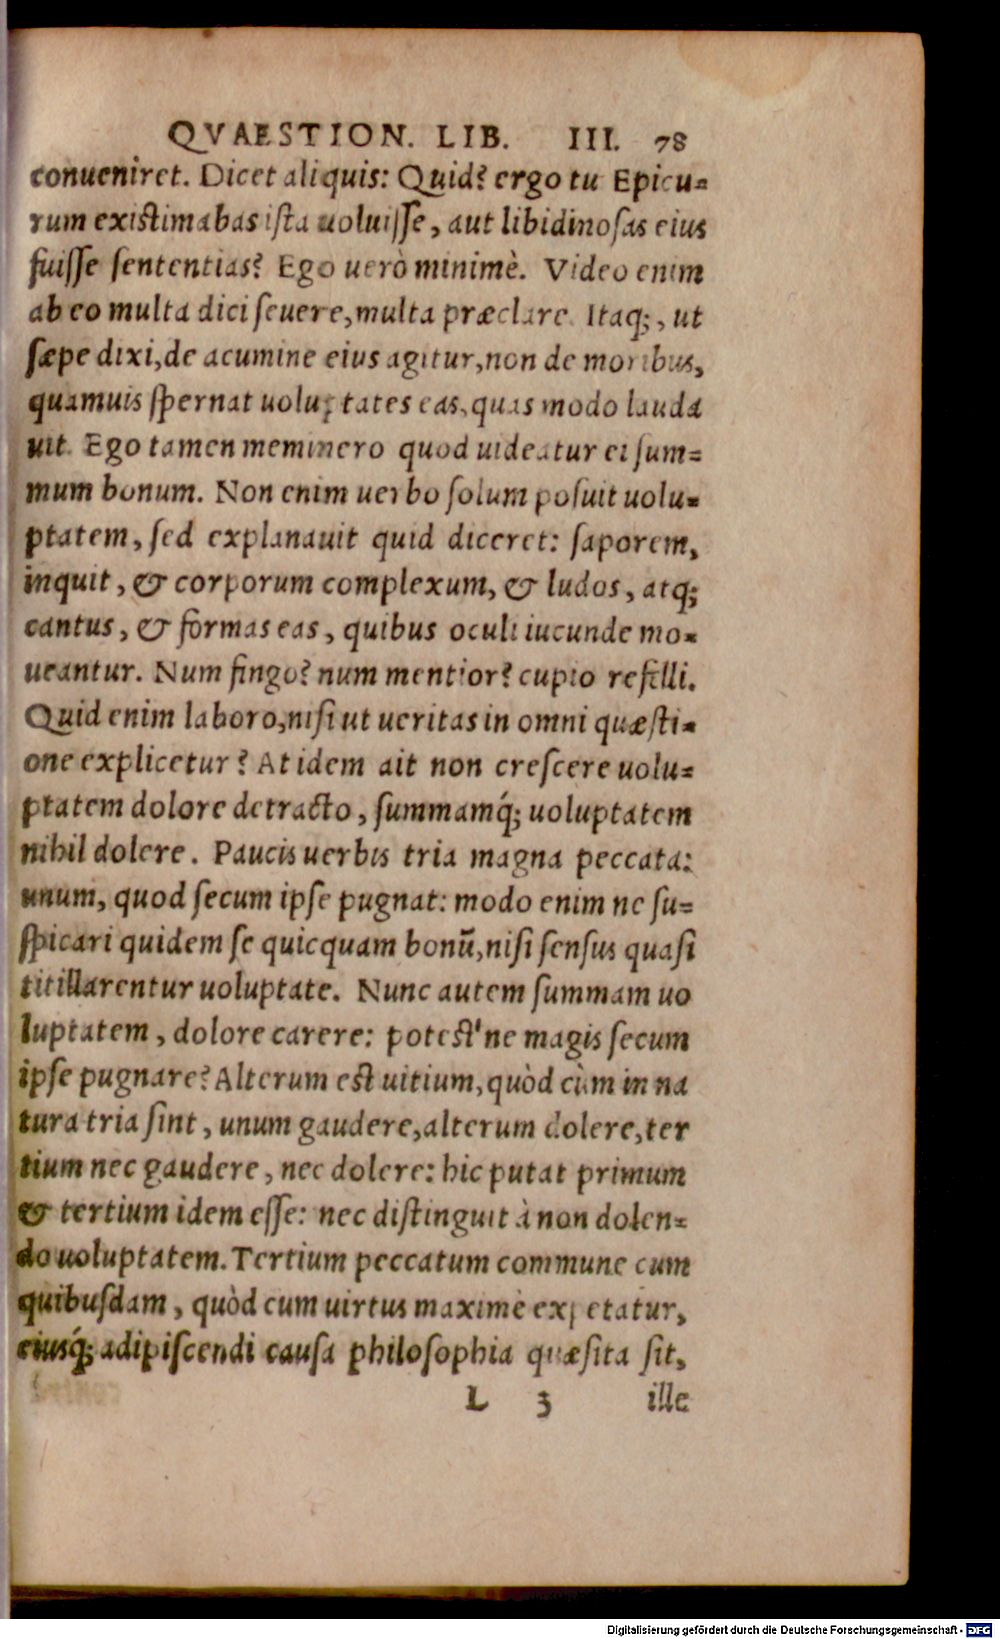 QVAESTION. LIB. III. 78
conueniret. Dicet aliquis: Quid? ergo tu Epicu=
rum existimabas ista uoluisse, aut libidinosas eius
fuisse sententias? Ego uerò minimè. Video enim
ab eo multa dici seuere, multa præclare. Itaq;, ut
sæpe dixi, de acumine eius agitur, non de moribus,
quamuis spernat uoluptates eas, quas modo lauda
uit. Ego tamen meminero quod uideatur ei sum=
mum bonum. Non enim uerbo solum posuit uolu=
ptatem, sed explanauit quid diceret: saporem,
inquit, & corporum complexum, & ludos, atq;
cantus, & formas eas, quibus oculi iucunde mo=
ueantur. Num fingo? num mentior? cupio refelli.
Quid enim laboro, nisi ut ueritas in omni quæsti=
one explicetur? At idem ait non crescere uolu=
ptatem dolore detracto, summamq́; uoluptatem
nihil dolere. Paucis uerbis tria magna peccata:
unum, quod secum ipse pugnat: modo enim ne su=
spicari quidem se quicquam bonū, nisi sensus quasi
titillarentur uoluptate. Nunc autem summam uo
luptatem, dolore carere: potest'ne magis secum
ipse pugnare? Alterum est uitium, quòd cùm in na
tura tria sint, unum gaudere, alterum dolere, ter
tium nec gaudere, nec dolere: hic putat primum
& tertium idem esse: nec distinguit à non dolen=
do uoluptatem. Tertium peccatum commune cum
quibusdam, quòd cum uirtus maximè expetatur,
eiusq́; adipiscendi causa philosophia quæsita sit,
L 3 ille
Digitalisierung gefördert durch die Deutsche Forschungsgemeinschaft - DFG